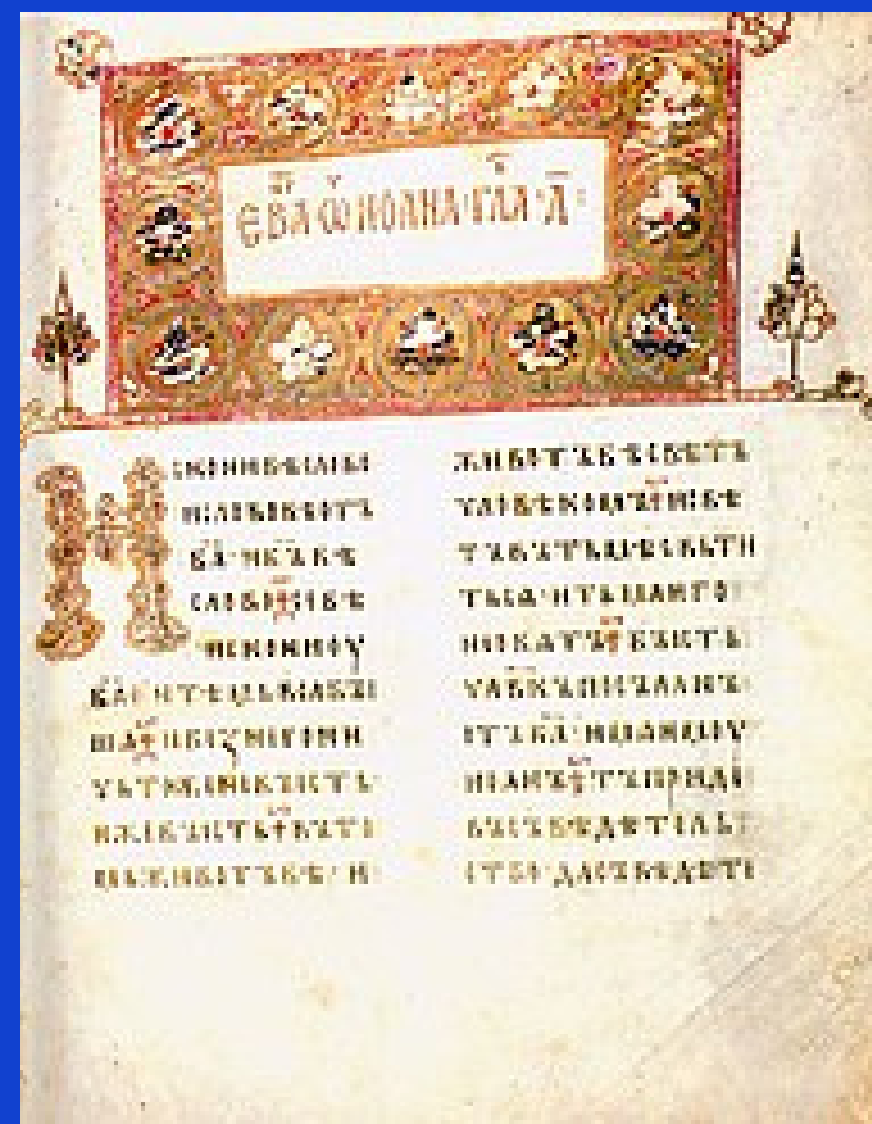 ЕВА ѠИОАНА·ГЛА·А҃·
Искони бѣ слово
и слово бѣ отъ
ба҃· и бъ҃ бѣ
слово се бѣ
искони оу
ба҃· и тѣмь вьса бꙑ
шѧ и без него ни
чьтоже не бꙑсть·
еже бꙑсть въ то
мь животъ бѣ· и
животъ бѣ свѣтъ
чловѣкомъ и свѣ
тъ въ тьмѣ свьти
тьсѧ· и тьма его
не обѧтъ бꙑсть
чл҃вкъ посъланъ
отъ ба҃· имѧ емоу
иоанъ тъ приде
въ съвѣдѣтель
ство· да съвѣдѣте